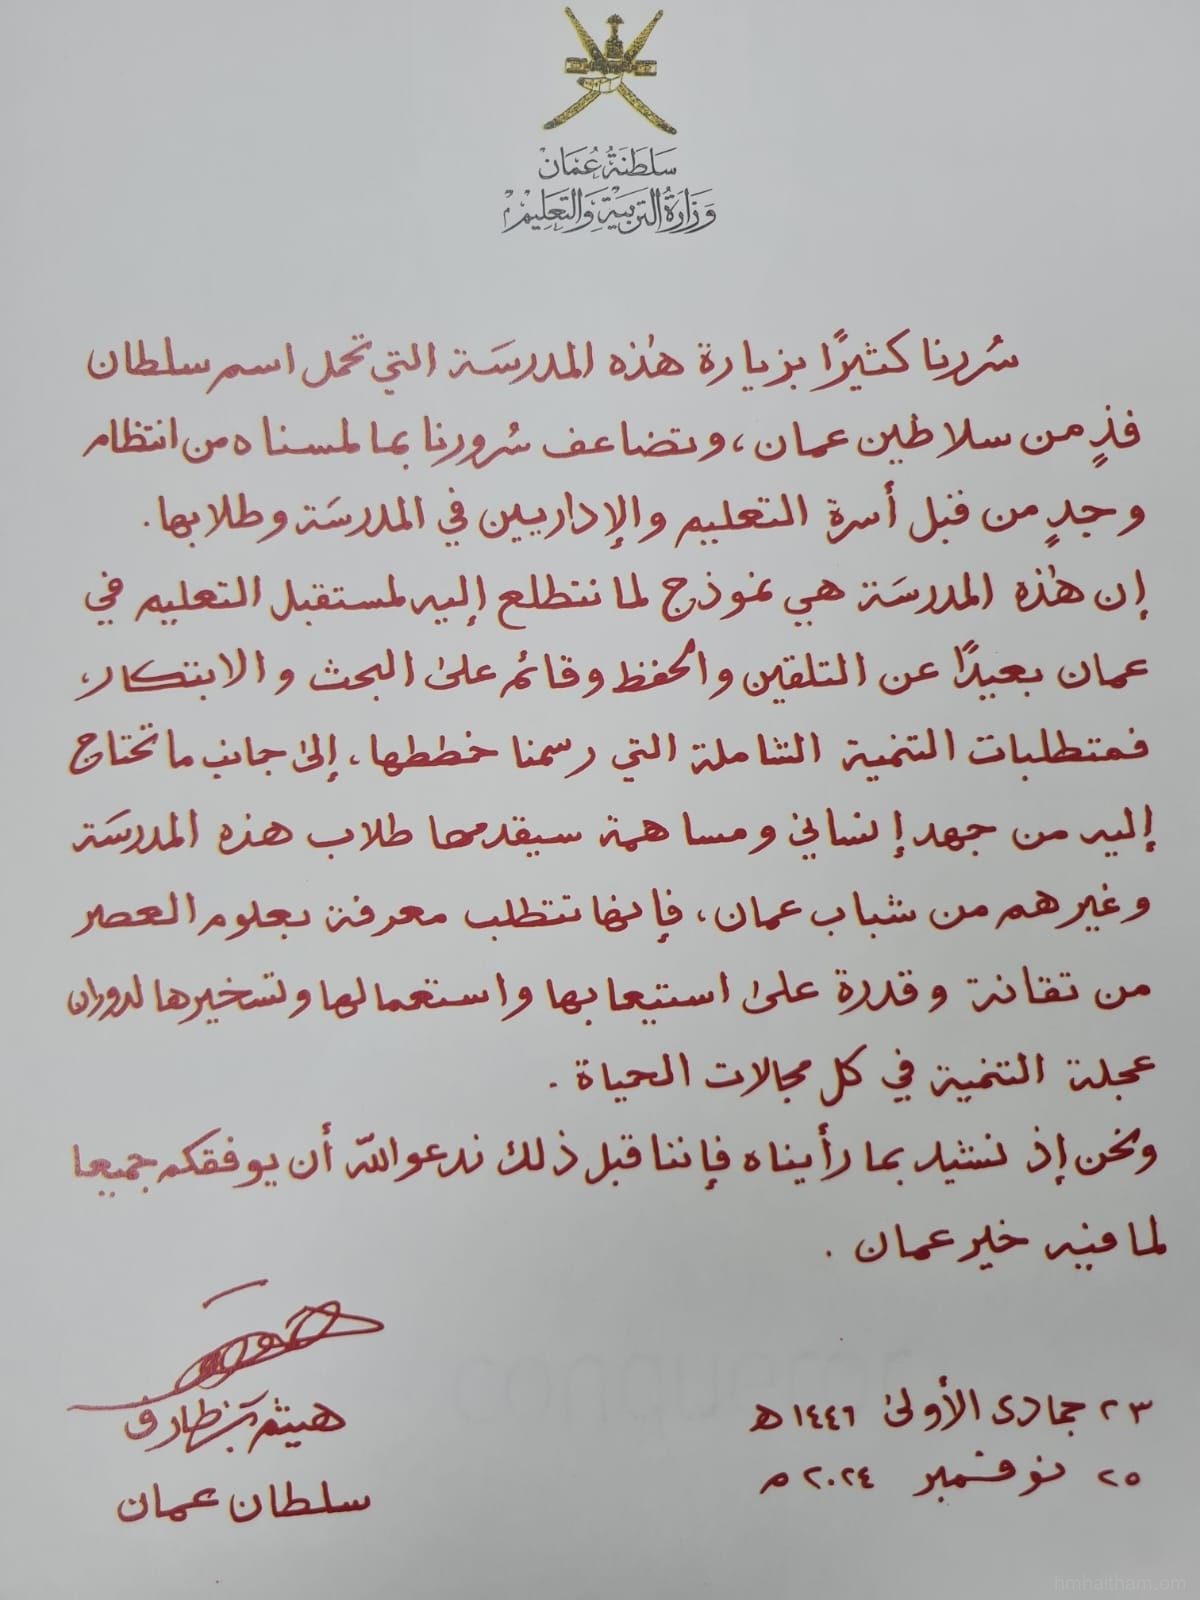 سَلطَنَةُ عُمَان
وَزَارَةُ التَّربيَةِ وَالتَّعلِيم
سُررنا كثيرًا بزيارة هٰذه المدرسَة التي تحمل اسم سلطان
فذٍ من سلاطين عمان، وتضاعف سُرورنا بما لمسناه من انتظام
وجدٍ من قبل أسرة التعليم والإداريين في المدرسَة وطلابها.
إن هٰذه المدرسَة هي نموذج لما نتطلع إليه لمستقبل التعليم في
عمان بعيدًا عن التلقين والحفظ وقائم على البحث والابتكار،
فمتطلبات التنمية الشاملة التي رسمنا خططها، إلى جانب ما تحتاج
إليه من جهد إنساني ومساهمة سيقدمها طلاب هذه المدرسَة
وغيرهم من شباب عمان، فإنها تتطلب معرفة بعلوم العصر
من تقانة وقدرة على استيعابها واستعمالها وتسخيرها لدوران
عجلة التنمية في كل مجالات الحياة.
ونحن إذ نشيد بما رأيناه فإننا قبل ذلك ندعو الله أن يوفقكم جميعا
لما فيه خير عمان.
هيثم بن طارق
سلطان عمان
٢٣ جمادى الأولى ١٤٤٦ هـ
٢٥ نوفمبر ٢٠٢٤ م
hmhaitham.om